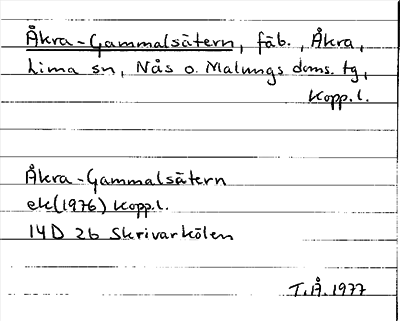 Åkra-Gammalsätern, fäb., Åkra,
Lima sn, Nås o. Malungs doms. tg,
Kopp.l.
Åkra-Gammalsätern
ek(1976) Kopp.l.
14D 2b Skrivarkölen
T.Å.1977